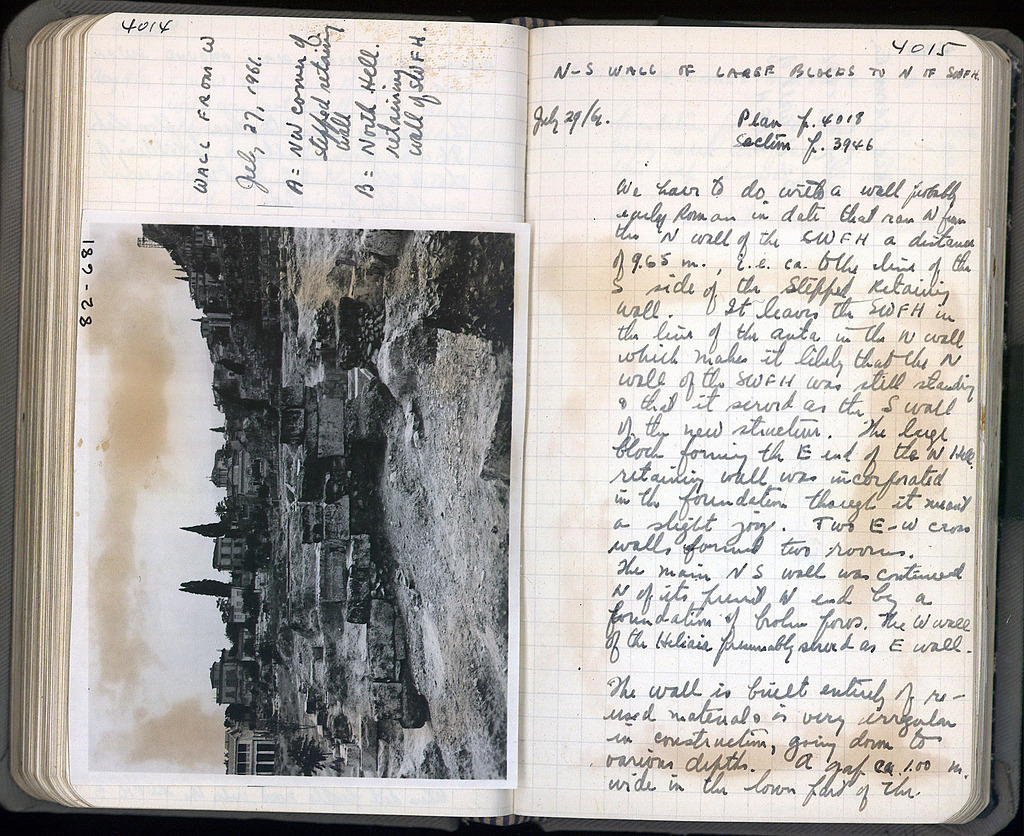 4014
WALL FROM W
July 27, 1961.
A = NW corner of
stepped retaining
wall
B = North Hell.
retaining
wall of SWFH.
82-681
4015
N-S WALL OF LARGE BLOCKS TO N OF SWFH.
July 29/61.
Plan p. 4018
Section p. 3946
We have to do with a wall probably
early Roman in date that ran N from
the N wall of the SWFH a distance
of 9.65 m., i.e. ca. to the line of the
S side of the Stepped Retaining
wall. It leaves the SWFH in
the line of the anta in the N wall
which makes it likely that the N
wall of the SWFH was still standing
& that it served as the S wall
of the new structure. The large
block forming the E end of the N Hell.
retaining wall was incorporated
in the foundation though it meant
a slight jog. Two E-W cross
walls formed two rooms.
The main N S wall was continued
N of its present N end by a
foundation of broken poros. The W wall
of the Heliaia presumably served as E wall.
The wall is built entirely of re-
used materials & very irregular
in construction, going down to
various depths. A gap ca 1.00 m.
wide in the lower part of the